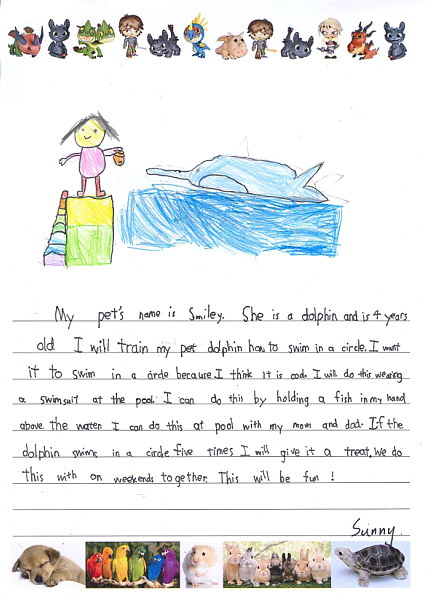 My pet's name is Smiley. She is a dolphin and is 4 years
old I will train my pet dolphin how to swim in a circle. I want
it to swim in a circle because I think it is cool. I will do this wearing
a swimsuit at the pool. I can do this by holding a fish in my hand
above the water. I can do this at pool with my mom and dad. If the
dolphin swims in a circle five times I will give it a treat. We do
this with on weekends together. This will be fun !
Sunny.